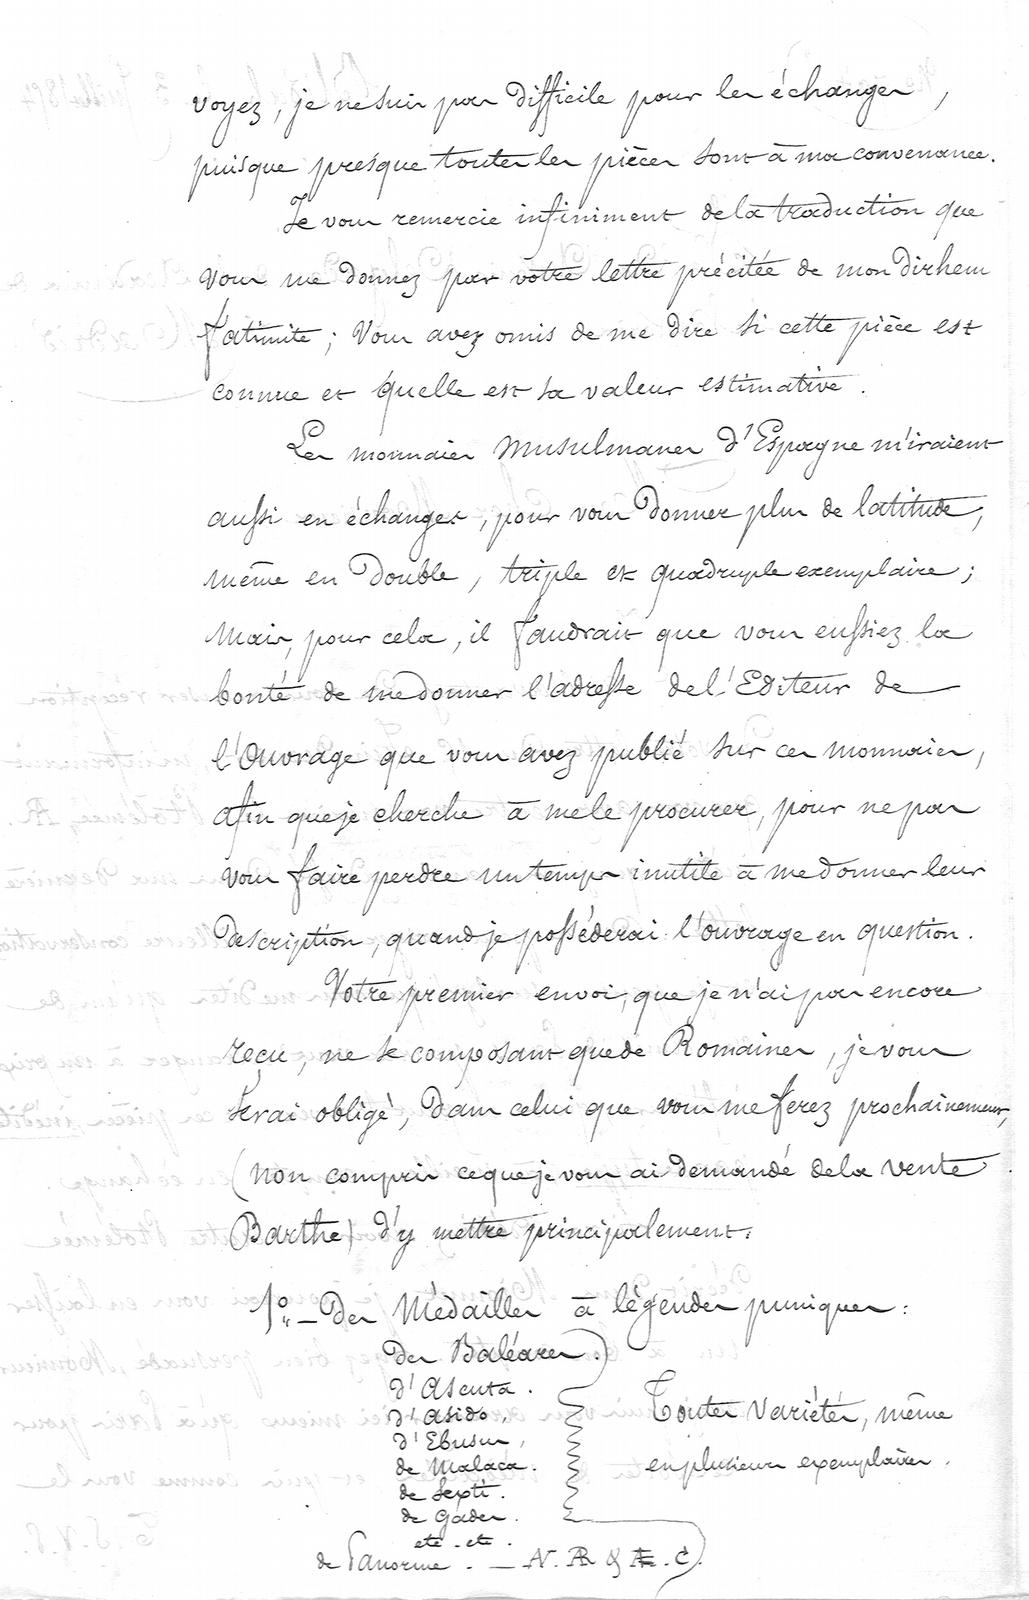 voyez, je ne suis pas difficile pour les échanges,
puisque presque toutes les pièces sont à ma convenance.
Je vous remercie infiniment de la traduction que
vous me donnez par votre lettre précitée de mon dirhem
fatimite ; Vous avez omis de me dire si cette pièce est
connue et quelle est sa valeur estimative.
Les monnaies Musulmanes d'Espagne m'iraient
aussi en échanges, pour vous donner plus de latitude,
même en double, triple et quadruple exemplaire ;
Mais, pour cela, il faudrait que vous eussiez la
bonté de me donner l'adresse de l'Editeur de
l'Ouvrage que vous avez publié sur ces monnaies,
afin que je cherche à me le procurer, pour ne pas
vous faire perdre un temps inutile à me donner leur
description, quand je posséderai l'ouvrage en question.
Votre premier envoi, que je n'ai pas encore
reçu, ne se composant que de Romaines, je vous
serai obligé, dans celui que vous me ferez prochainement,
(non compris ce que je vous ai demandé de la vente
Barthe) d'y mettre principalement :
1°. — Des Médailles à légendes puniques :
des Baléares.)
d'Ascuta.
d'Asido,
d'Ebusus,
de Malaca.
de Sexti.
de Gades.
etc. etc.
Toutes Variétés, même
en plusieurs exemplaires.
de Panorme. — N. AR & AE. C).